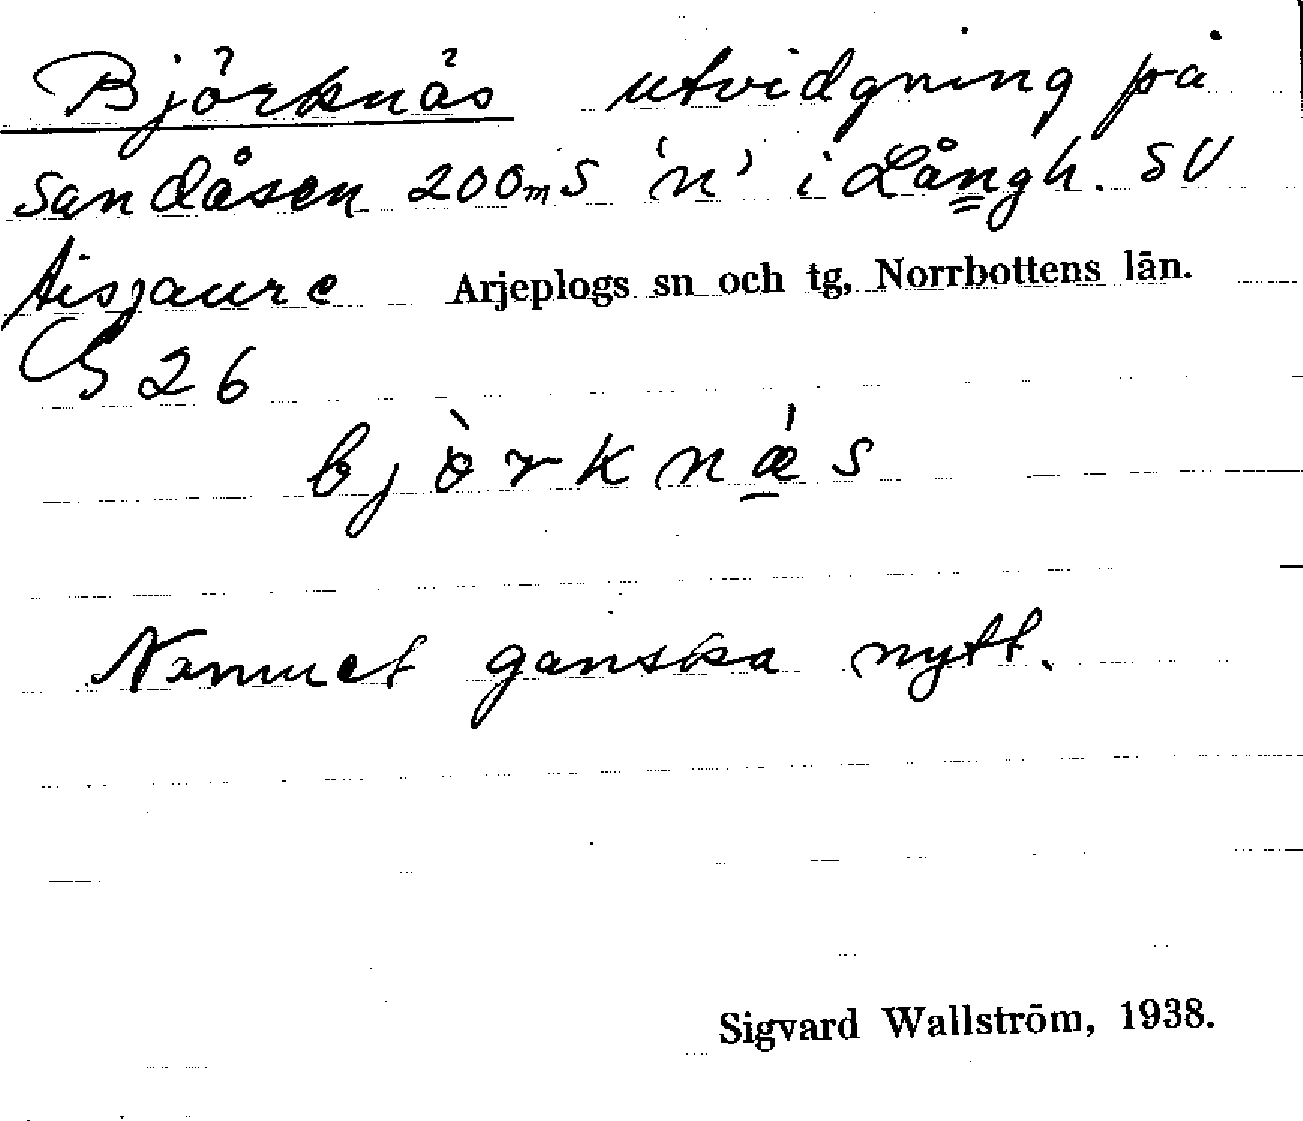 Björknäs utvidgning på
sandåsen 200m S 'n' i Långh. SV
Aisjaure Arjeplogs sn och tg, Norrbottens län.
G 26
bjòrknǽs
Namnet ganska nytt.
Sigvard Wallström, 1938.